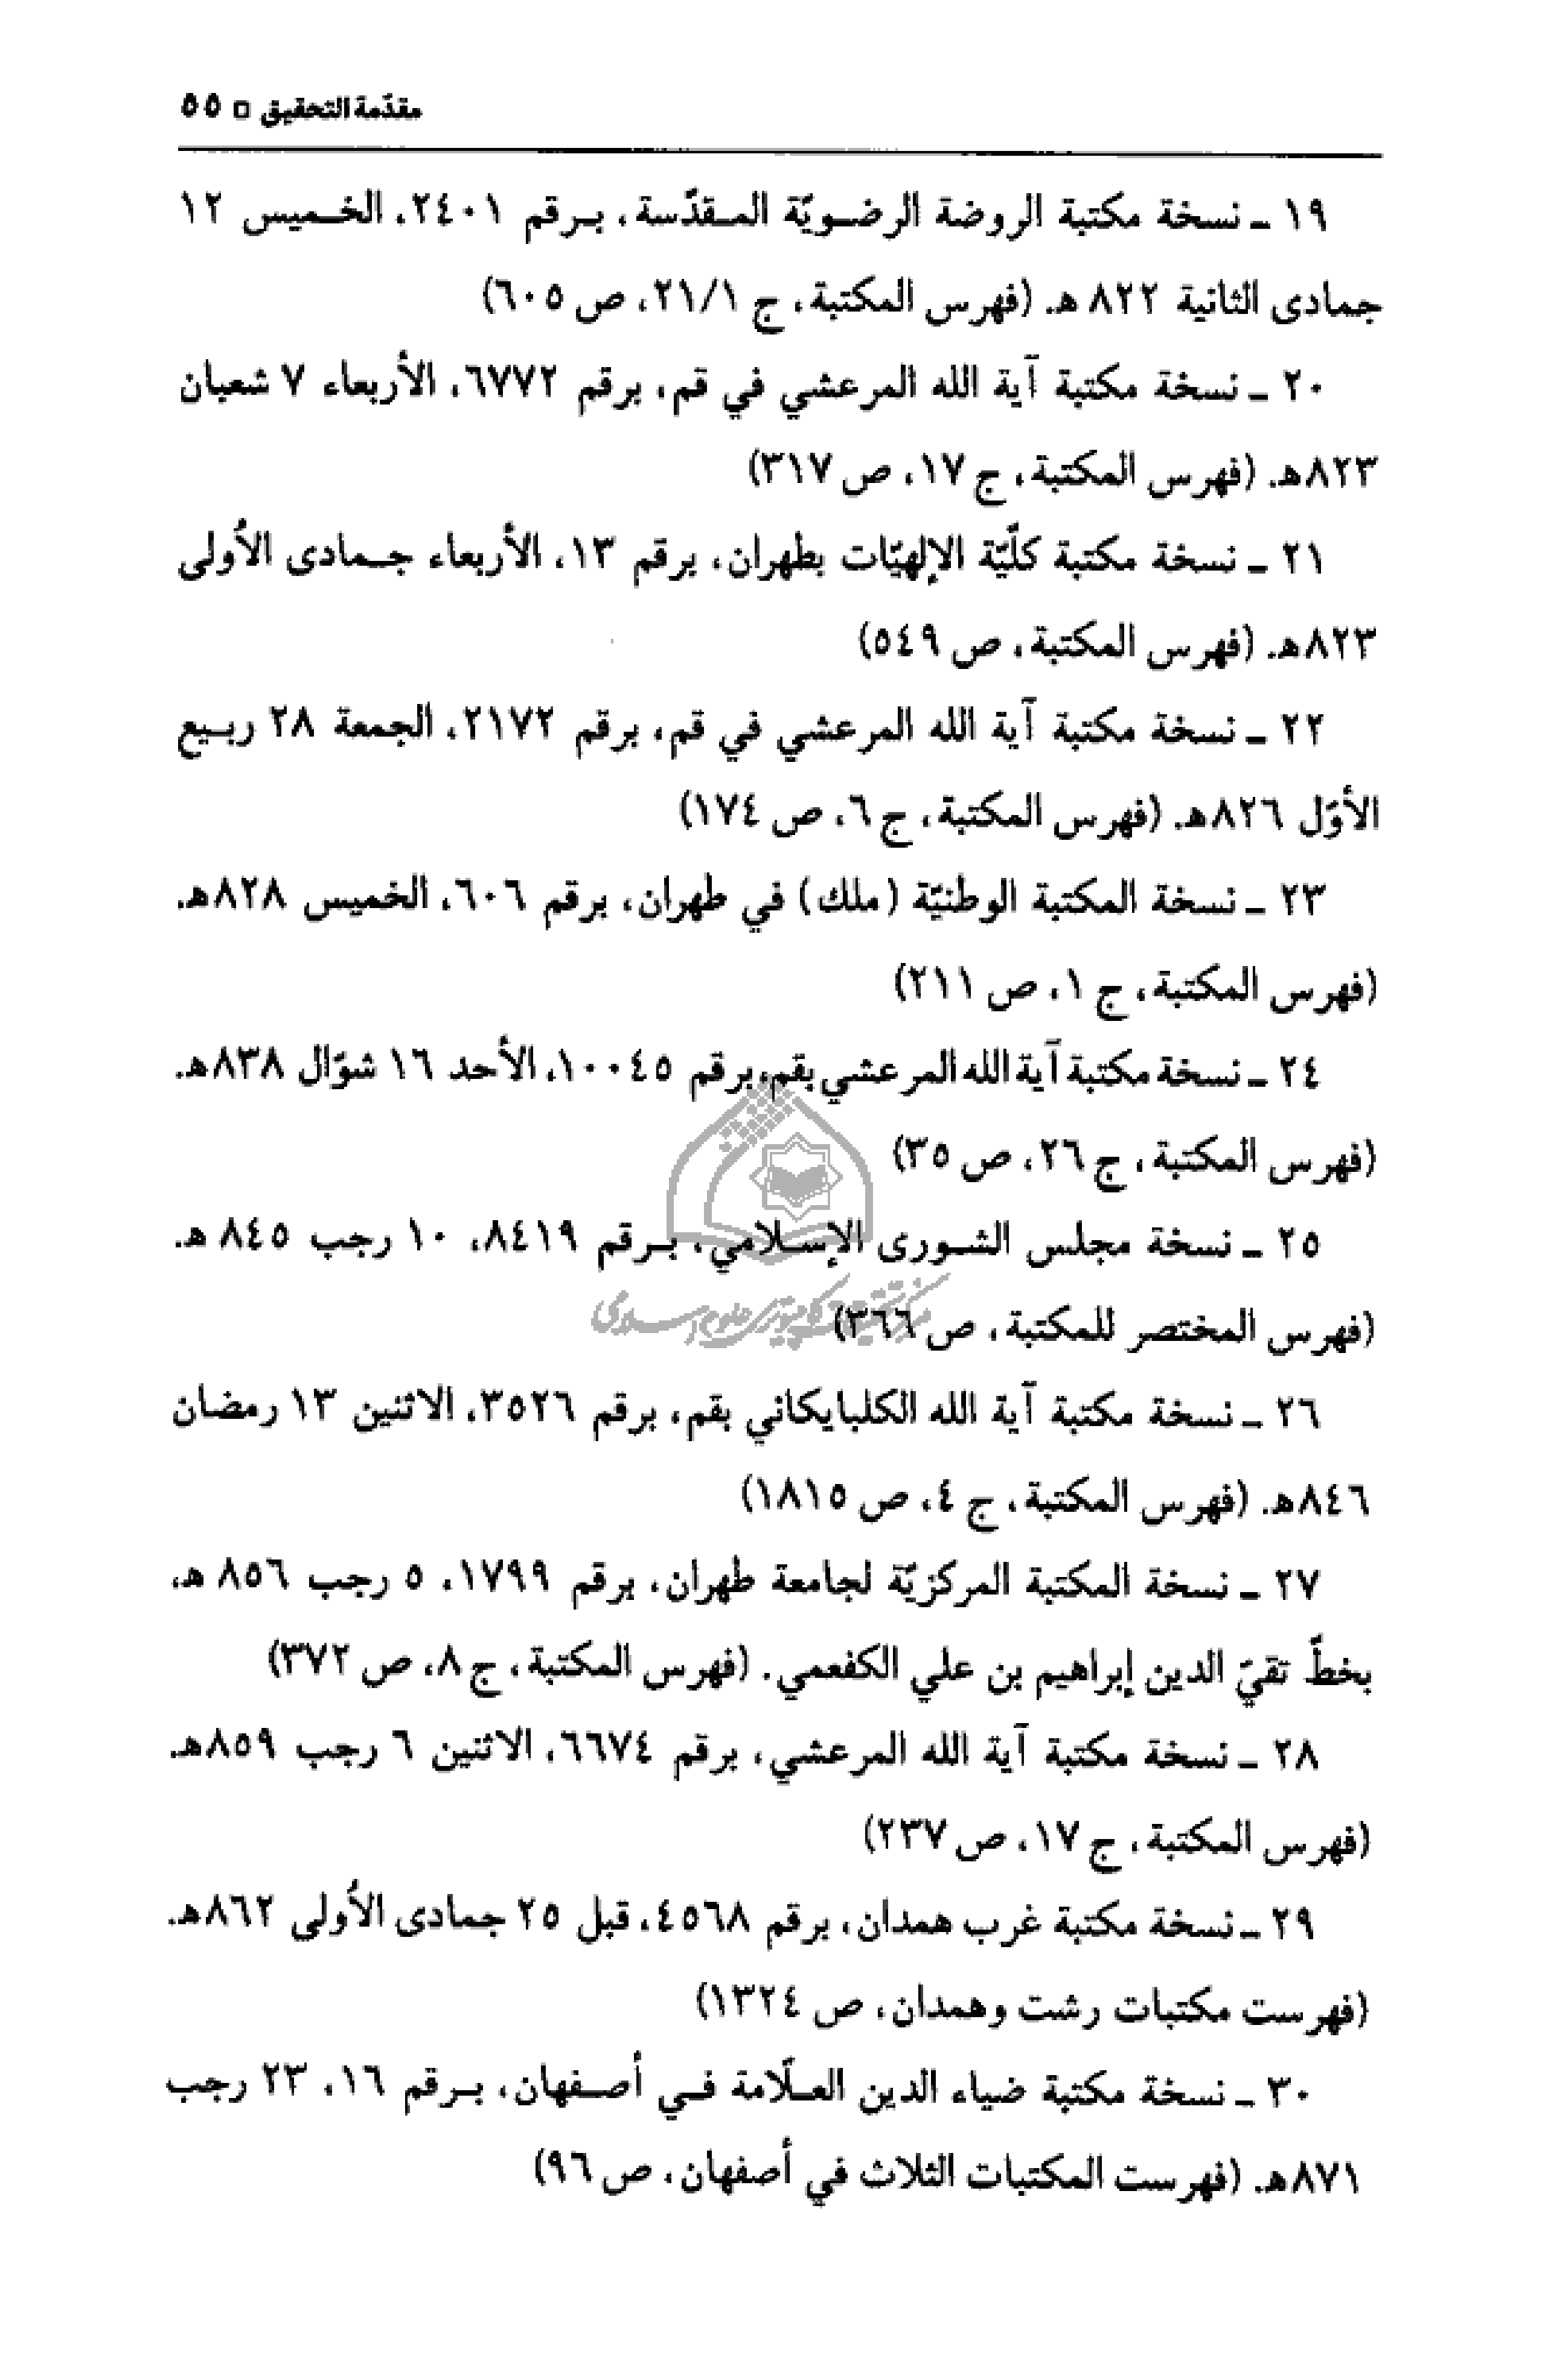 مقدّمة التحقيق □ ٥٥
١٩ ـ نسخة مكتبة الروضة الرضويّة المقدّسة، برقم ٢٤٠١، الخميس ١٢
جمادى الثانية ٨٢٢ هـ. (فهرس المكتبة، ج ٢١/١، ص ٦٠٥)
٢٠ ـ نسخة مكتبة آية الله المرعشي في قم، برقم ٦٧٧٢، الأربعاء ٧ شعبان
٨٢٣هـ. (فهرس المكتبة، ج ١٧، ص ٣١٧)
٢١ ـ نسخة مكتبة كلّيّة الإلهيّات بطهران، برقم ١٣، الأربعاء جمادى الأُولى
٨٢٣هـ. (فهرس المكتبة، ص ٥٤٩)
٢٢ ـ نسخة مكتبة آية الله المرعشي في قم، برقم ٢١٧٢، الجمعة ٢٨ ربيع
الأوّل ٨٢٦هـ. (فهرس المكتبة، ج ٦، ص ١٧٤)
٢٣ ـ نسخة المكتبة الوطنيّة (ملك) في طهران، برقم ٦٠٦، الخميس ٨٢٨هـ.
(فهرس المكتبة، ج ١، ص ٢١١)
٢٤ ـ نسخة مكتبة آية الله المرعشي بقم، برقم ١٠٠٤٥، الأحد ١٦ شوّال ٨٣٨هـ.
(فهرس المكتبة، ج ٢٦، ص ٣٥)
٢٥ ـ نسخة مجلس الشورى الإسلامي، برقم ٨٤١٩، ١٠ رجب ٨٤٥ هـ.
(فهرس المختصر للمكتبة، ص ٣٦٦)
مركز تحقيقات كامپيوترى علوم اسلامى
٢٦ ـ نسخة مكتبة آية الله الكلبايكاني بقم، برقم ٣٥٢٦، الاثنين ١٣ رمضان
٨٤٦هـ. (فهرس المكتبة، ج ٤، ص ١٨١٥)
٢٧ ـ نسخة المكتبة المركزيّة لجامعة طهران، برقم ١٧٩٩، ٥ رجب ٨٥٦ هـ،
بخطّ تقيّ الدين إبراهيم بن علي الكفعمي. (فهرس المكتبة، ج ٨، ص ٣٧٢)
٢٨ ـ نسخة مكتبة آية الله المرعشي، برقم ٦٦٧٤، الاثنين ٦ رجب ٨٥٩هـ.
(فهرس المكتبة، ج ١٧، ص ٢٣٧)
٢٩ ـ نسخة مكتبة غرب همدان، برقم ٤٥٦٨، قبل ٢٥ جمادى الأُولى ٨٦٢هـ.
(فهرست مكتبات رشت وهمدان، ص ١٣٢٤)
٣٠ ـ نسخة مكتبة ضياء الدين العلّامة في أصفهان، برقم ١٦، ٢٣ رجب
٨٧١هـ. (فهرست المكتبات الثلاث في أصفهان، ص ٩٦)